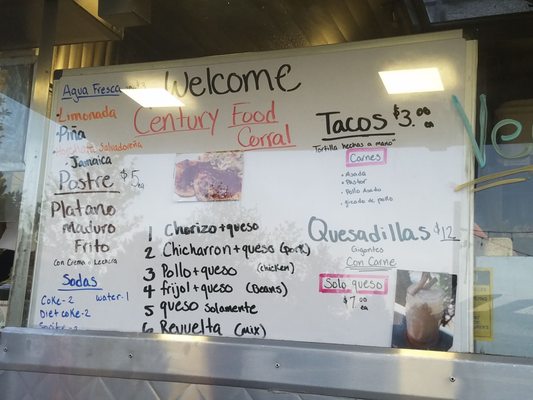 Welcome
Century Food
Corral
Agua Fresca
Limonada
Piña
Salvadoreña
Jamaica
Postre $5
ea
Platano
Maduro
Frito
Con Crema o Lechera
Sodas
Coke-2 water-1
Diet coke-2
Sprite-2
1 Chorizo+queso
2 Chicharron+queso (pork)
3 Pollo+queso (chicken)
4 frijol+queso (Beans)
5 queso solamente
6 Revuelta (mix)
Tacos $3.00
ea
Tortilla hechas a mano"
Carnes
• Asada
• Pastor
• Pollo Asado
Quesadillas $12
Gigantes
Con Carne
Solo queso
$7.00
ea
Ve